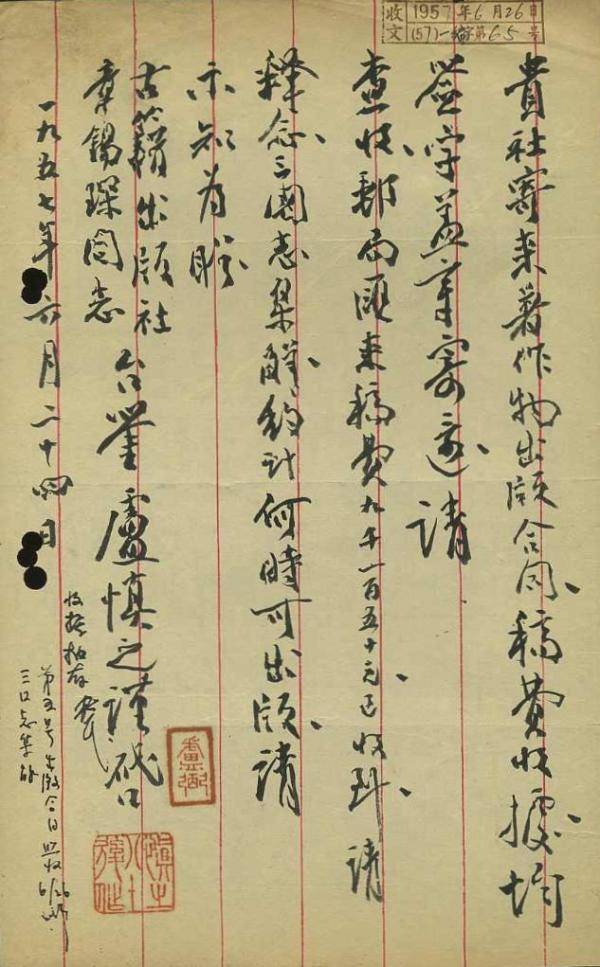 收文 1957年6月26日
(57)一字第65号
貴社寄来著作物出版合同、稿費收據、均
簽字蓋章寄還、請
查收、郵局匯来稿費九千一百五十元、已收到、請
釋念、三國志集解、約計何時可出版、請
示知为盼
古籍出版社
章錫琛同志
台鑒 盧慎之謹啟
一九五七年六月二十四日
收據抽存
第五号出版合同照收 6/26
三国志集解